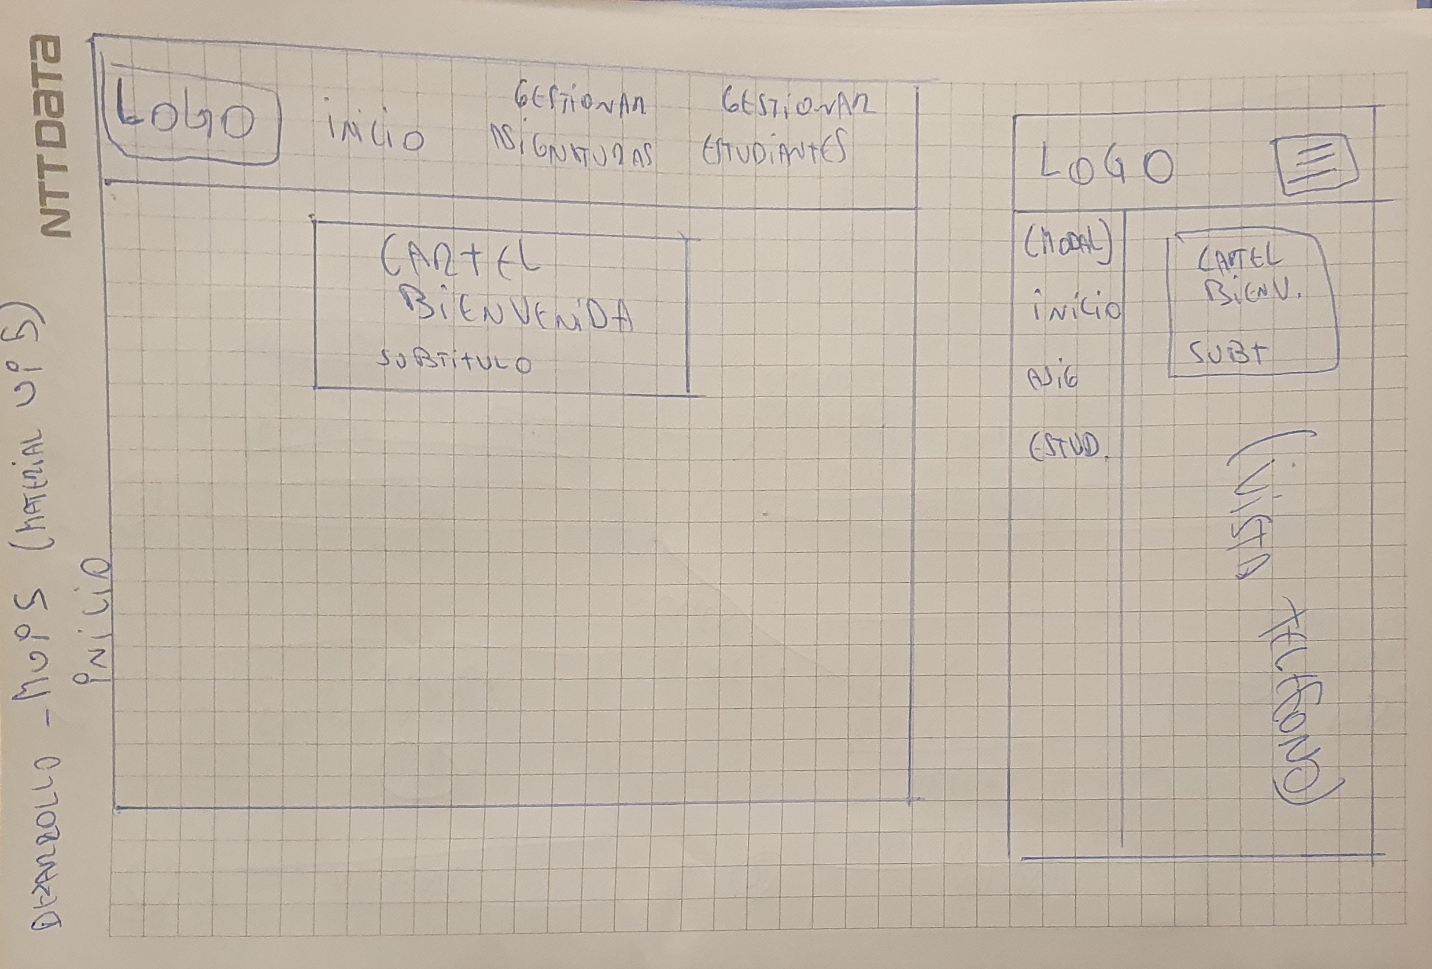 NTTData
DESARROLLO - MUPS (MATERIAL UPS)
INICIO
LOGO
iNiCiO
GESTiONAR
ASiGNATURAS
GESTiONAR
ESTUDiANTES
CARTEL
BiENVENiDA
SUBTiTULO
LOGO
(MODAL)
iNiCiO
ASiG
ESTUD.
CARTEL
BiENV.
SUBT
(VISTA
TELEFONO)